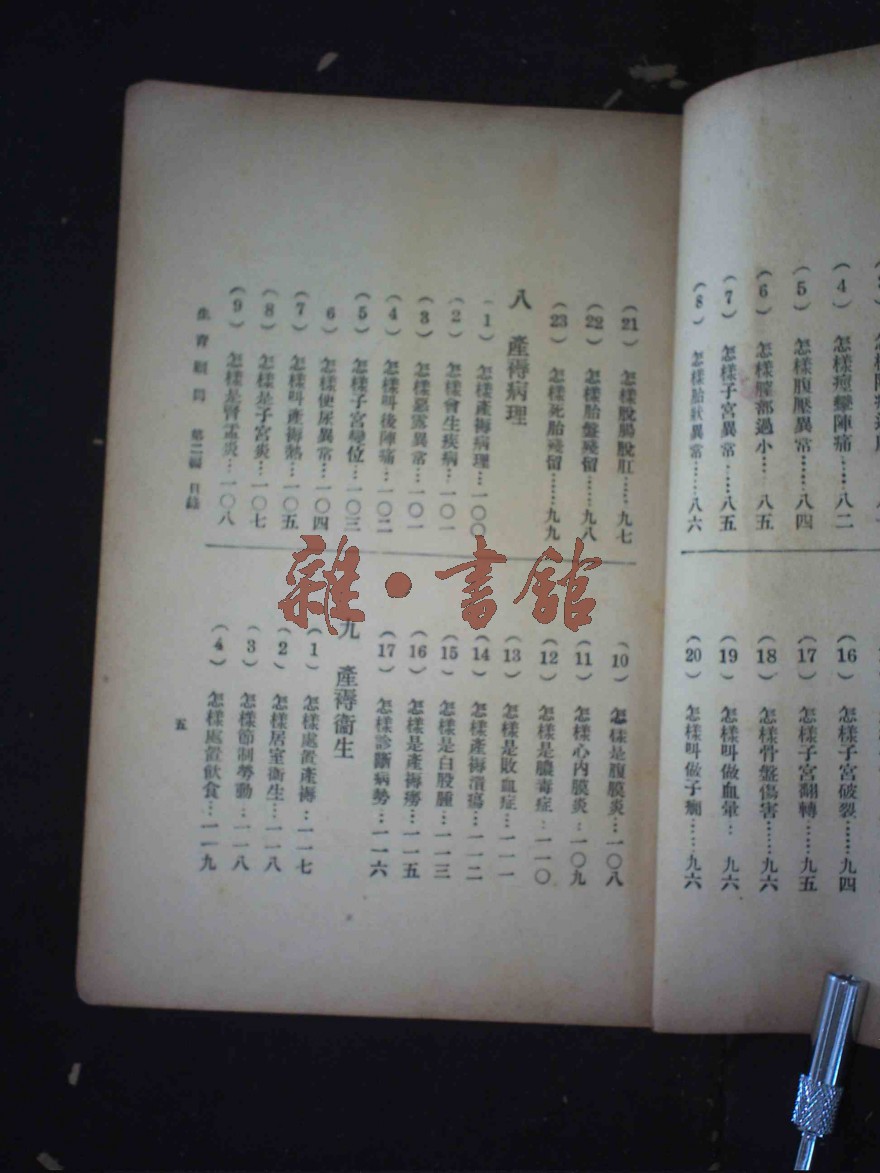 (4) 怎樣痙攣陣痛……八二
(5) 怎樣腹壓異常……八四
(6) 怎樣膣部過小……八五
(7) 怎樣子宮異常……八五
(8) 怎樣胎狀異常……八六
(16) 怎樣子宮破裂……九四
(17) 怎樣子宮翻轉……九五
(18) 怎樣骨盤傷害……九六
(19) 怎樣叫做血暈…九六
(20) 怎樣叫做子癇……九六
(21) 怎樣脫腸脫肛……九七
(22) 怎樣胎盤殘留……九八
(23) 怎樣死胎殘留……九九
八 產褥病理
(1) 怎樣產褥病理…一〇〇
(2) 怎樣會生疾病…一〇一
(3) 怎樣惡露異常…一〇一
(4) 怎樣叫後陣痛…一〇二
(5) 怎樣子宮變位…一〇三
(6) 怎樣便尿異常…一〇四
(7) 怎樣叫產褥熱…一〇五
(8) 怎樣是子宮炎…一〇七
(9) 怎樣是腎盂炎…一〇八
(10) 怎樣是腹膜炎…一〇八
(11) 怎樣心內膜炎…一〇九
(12) 怎樣是膿毒症…一一〇
(13) 怎樣是敗血症…一一一
(14) 怎樣產褥潰瘍…一一二
(15) 怎樣是白股腫…一一三
(16) 怎樣是產褥癆…一一五
(17) 怎樣診斷病勢…一一六
九 產褥衞生
(1) 怎樣處置產褥…一一七
(2) 怎樣居室衞生…一一八
(3) 怎樣節制勞動…一一八
(4) 怎樣處置飲食…一一九
生育顧問 第二編 目錄
五
雜·書館